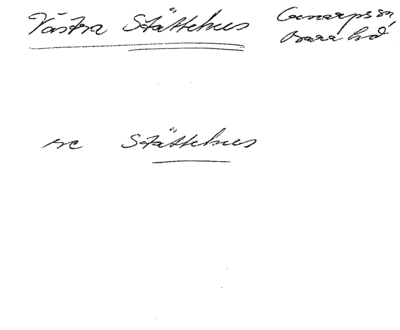 Västra Stättehus Genarps sn,
Bara hd
se Stättehus